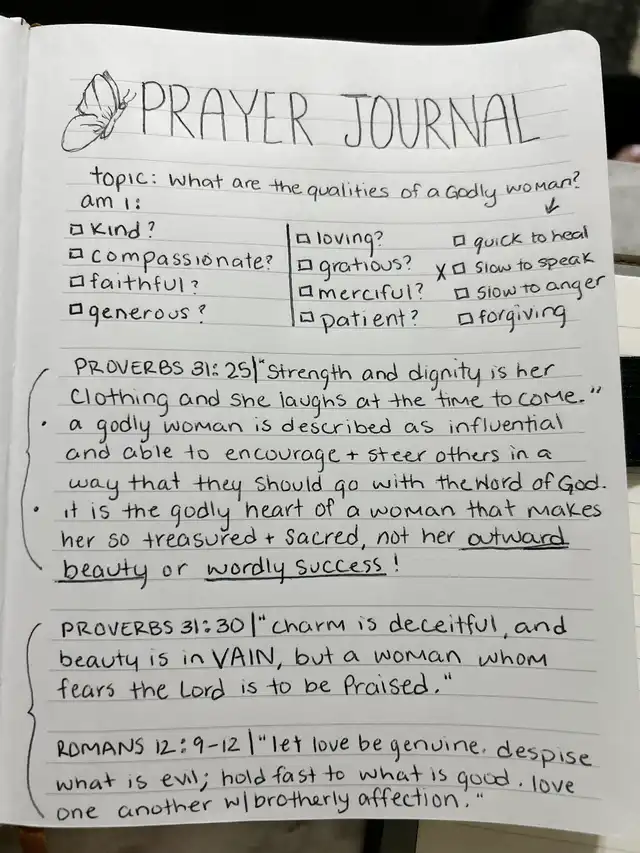 PRAYER JOURNAL
topic: What are the qualities of a Godly woman?
am I:
kind?
compassionate?
faithful?
generous?
loving?
gratious?
merciful?
patient?
quick to heal
X slow to speak
slow to anger
forgiving
PROVERBS 31:25|"Strength and dignity is her
clothing and she laughs at the time to come."
• a godly woman is described as influential
and able to encourage + steer others in a
way that they should go with the Word of God.
• it is the godly heart of a woman that makes
her so treasured + sacred, not her outward
beauty or wordly success!
PROVERBS 31:30|"charm is deceitful, and
beauty is in VAIN, but a woman whom
fears the Lord is to be Praised."
ROMANS 12:9-12|"let love be genuine. despise
what is evil; hold fast to what is good. love
one another w/brotherly affection."